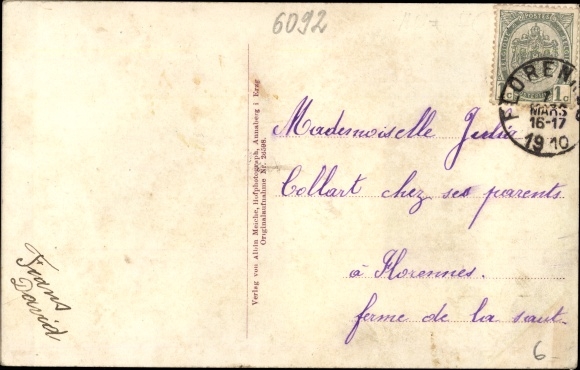 6092
1c
FLORENNES
7
MARS
16-17
1910
Verlag von Alwin Meiche, Hofphotograph, Annaberg i. Erzg.
Originalaufnahme Nr.
Mademoiselle
Collart chez ses parents
à Florennes.
ferme de la saut-
Frans
David
6-